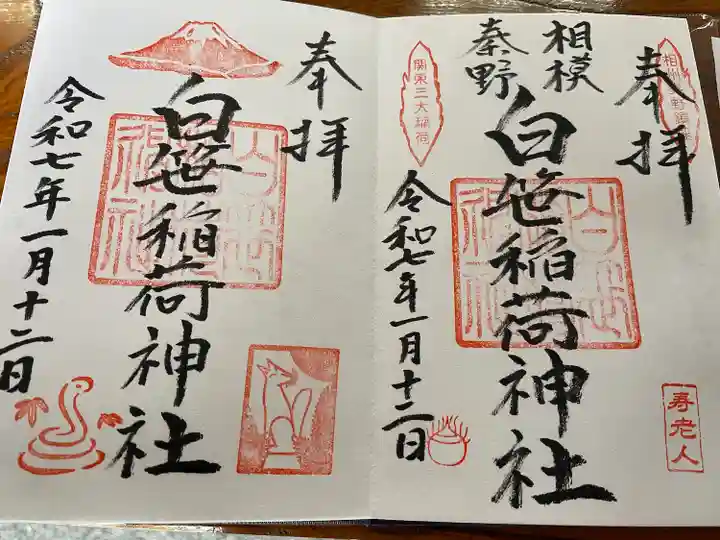 奉拝
相模
秦野
白笹稲荷神社
令和七年一月十二日
関東三大稲荷
寿老人
奉拝
白笹稲荷神社
令和七年一月十二日